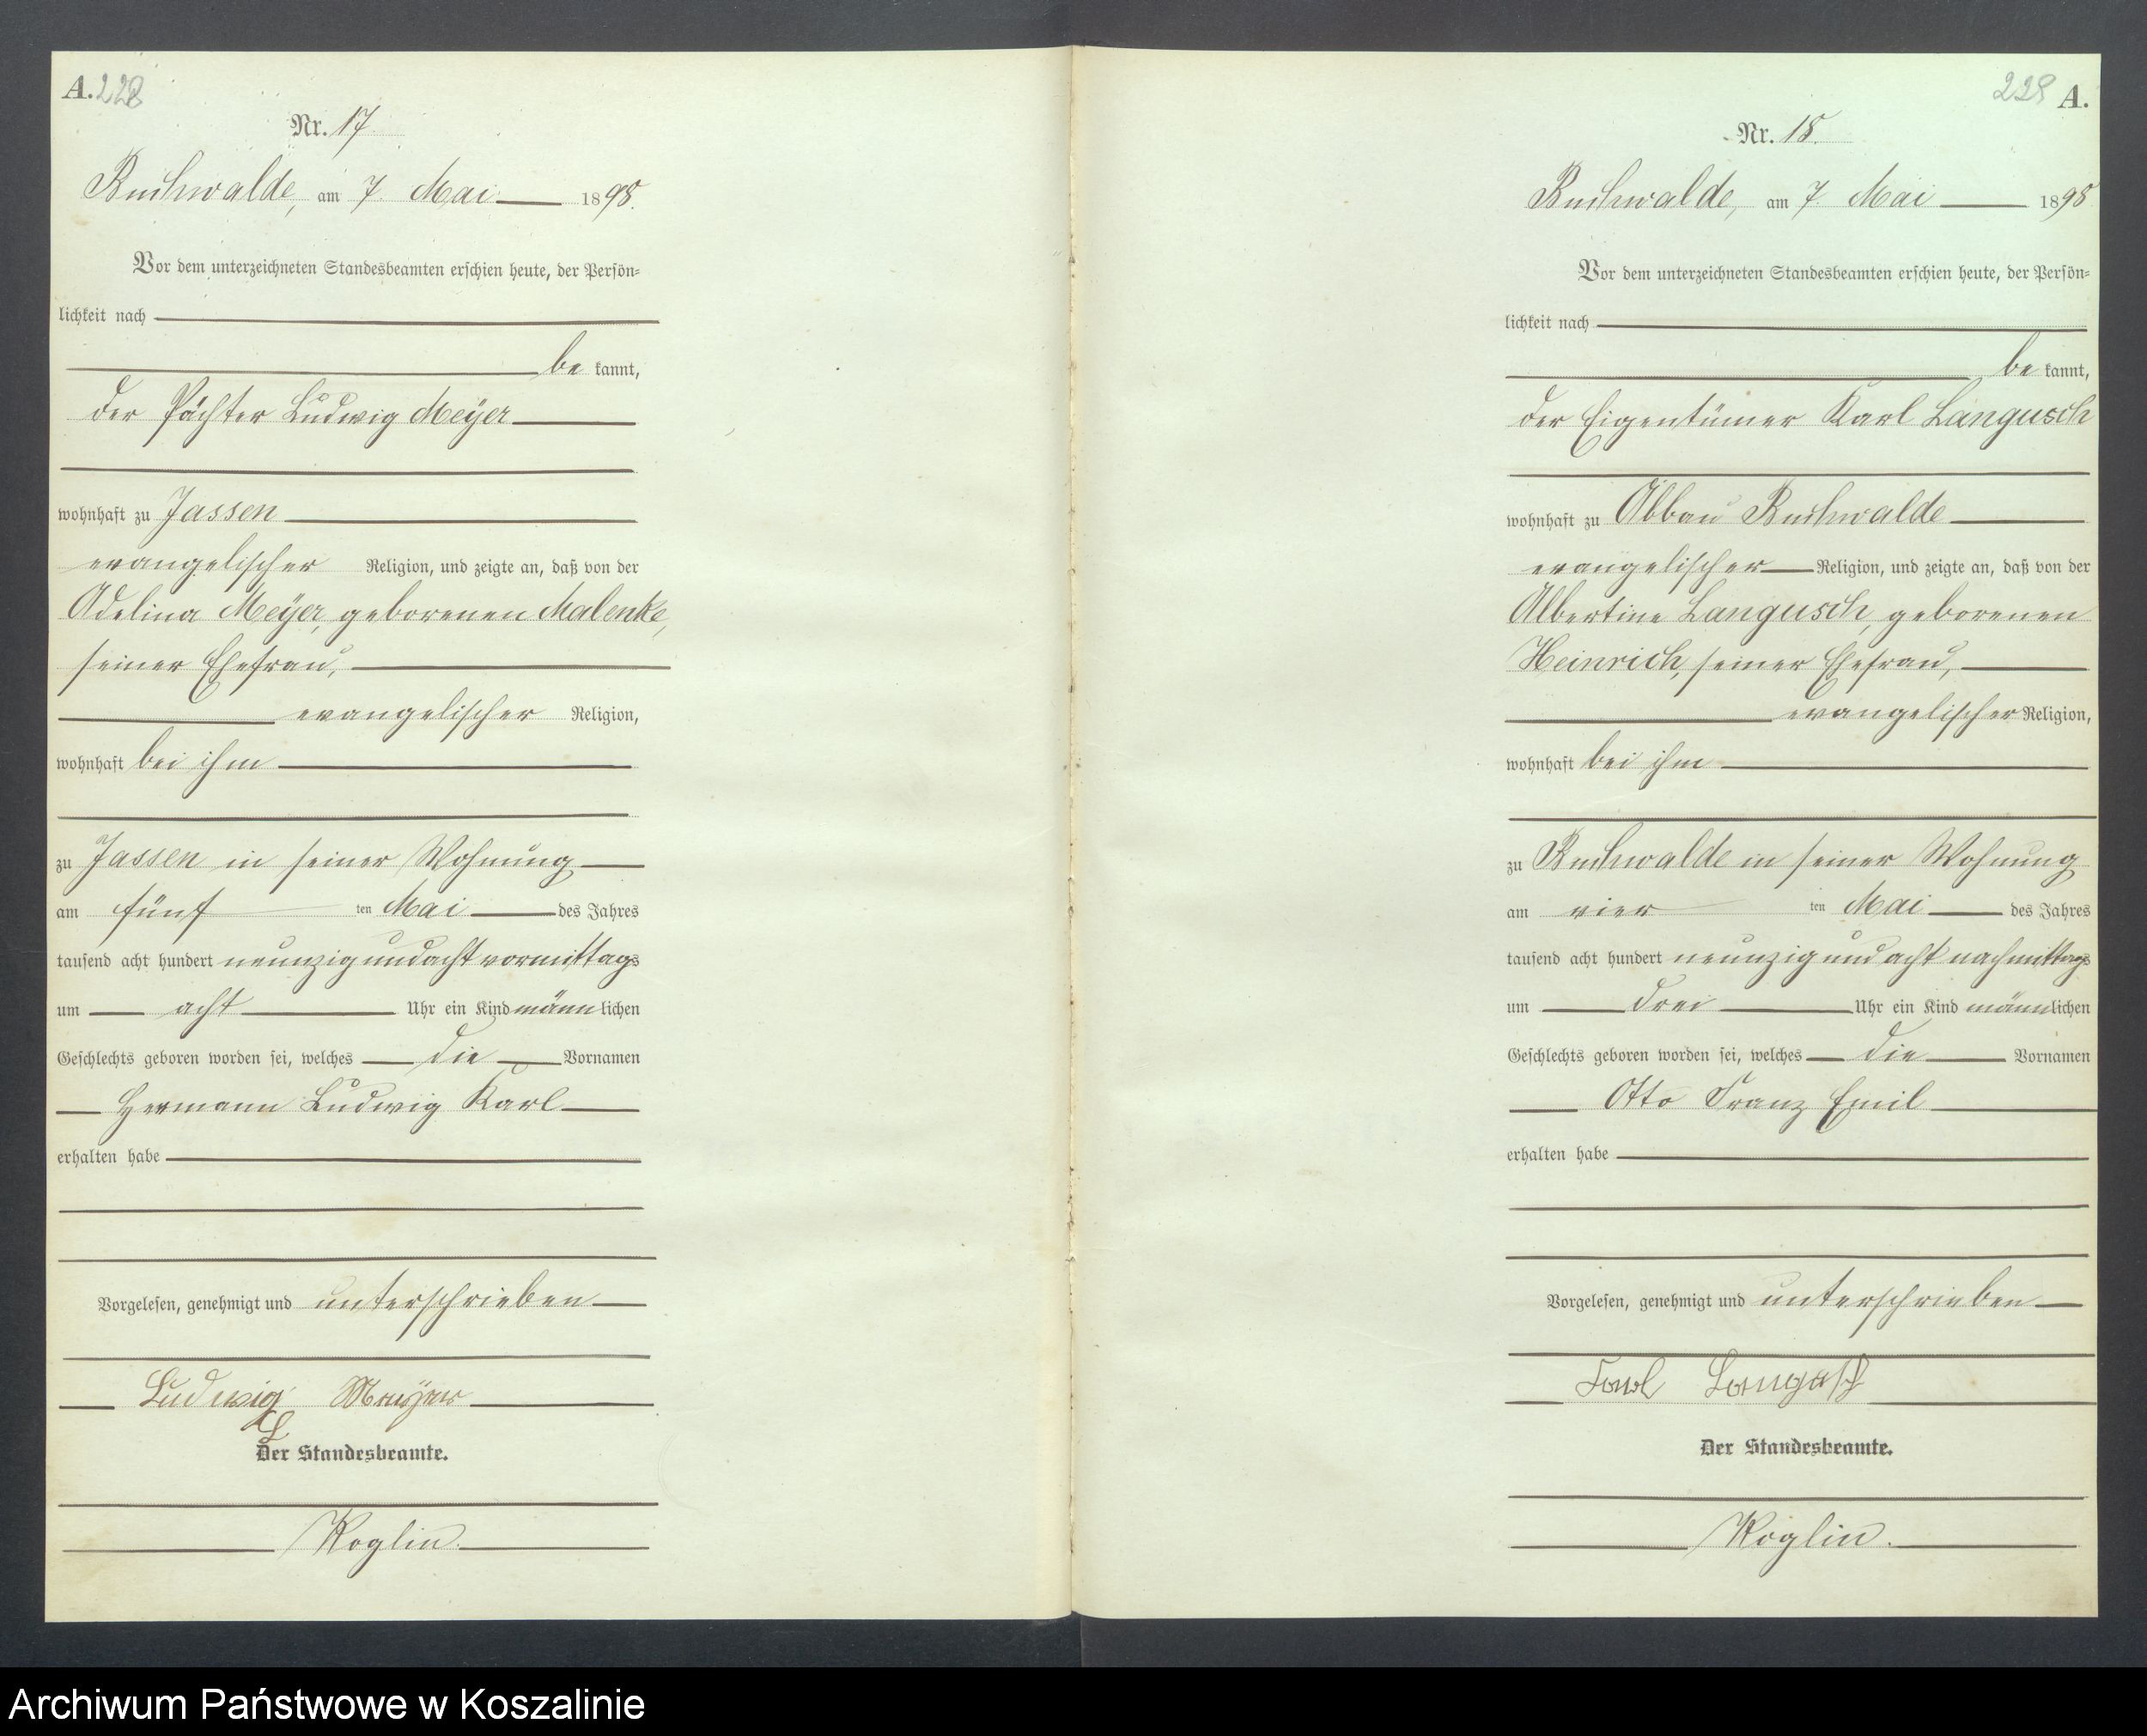 A. 228
Nr. 17.
Buchwalde, am 7. Mai 1898.
Vor dem unterzeichneten Standesbeamten erschien heute, der Persön-
lichkeit nach
be kannt,
der Pächter Ludwig Meÿer
wohnhaft zu Jassen
evangelischer Religion, und zeigte an, daß von der
Adelina Meÿer, geborenen Malenke,
seiner Ehefrau,
evangelischer Religion,
wohnhaft bei ihm
zu Jassen in seiner Wohnung
am fünf ten Mai des Jahres
tausend acht hundert neunzig und acht vormittags
um acht Uhr ein Kind männlichen
Geschlechts geboren worden sei, welches die Vornamen
Hermann Ludwig Karl
erhalten habe
Vorgelesen, genehmigt und unterschrieben
Ludwig
Der Standesbeamte.
Koglin.
229 A.
Nr. 18.
Buchwalde, am 7. Mai 1898
Vor dem unterzeichneten Standesbeamten erschien heute, der Persön-
lichkeit nach
be kannt,
der Eigentümer Karl Langusch
wohnhaft zu Abbau Buchwalde
evangelischer Religion, und zeigte an, daß von der
Albertine Langusch, geborenen
Heinrich, seiner Ehefrau,
evangelischer Religion,
wohnhaft bei ihm
zu Buchwalde in seiner Wohnung
am vier ten Mai des Jahres
tausend acht hundert neunzig und acht nachmittags
um drei Uhr ein Kind männlichen
Geschlechts geboren worden sei, welches die Vornamen
Otto Franz Emil
erhalten habe
Vorgelesen, genehmigt und unterschrieben
Der Standesbeamte.
Koglin.
Archiwum Państwowe w Koszalinie